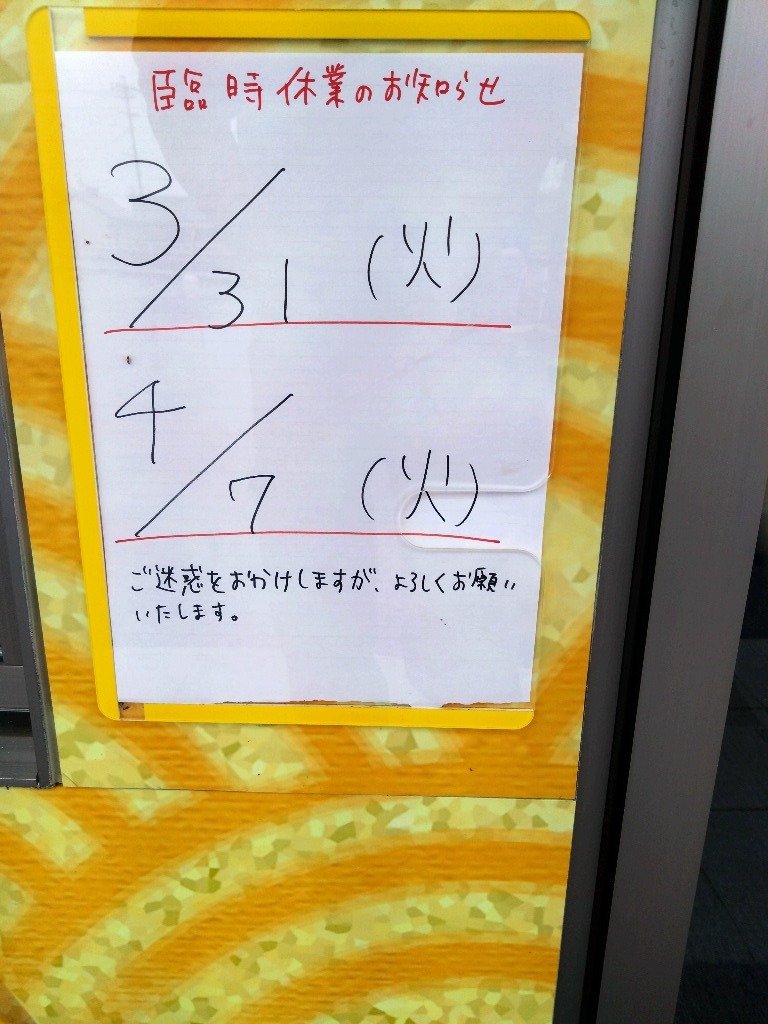 臨時休業のお知らせ
3/31 (火)
4/7 (火)
ご迷惑をおかけしますが、よろしくお願い
いたします。